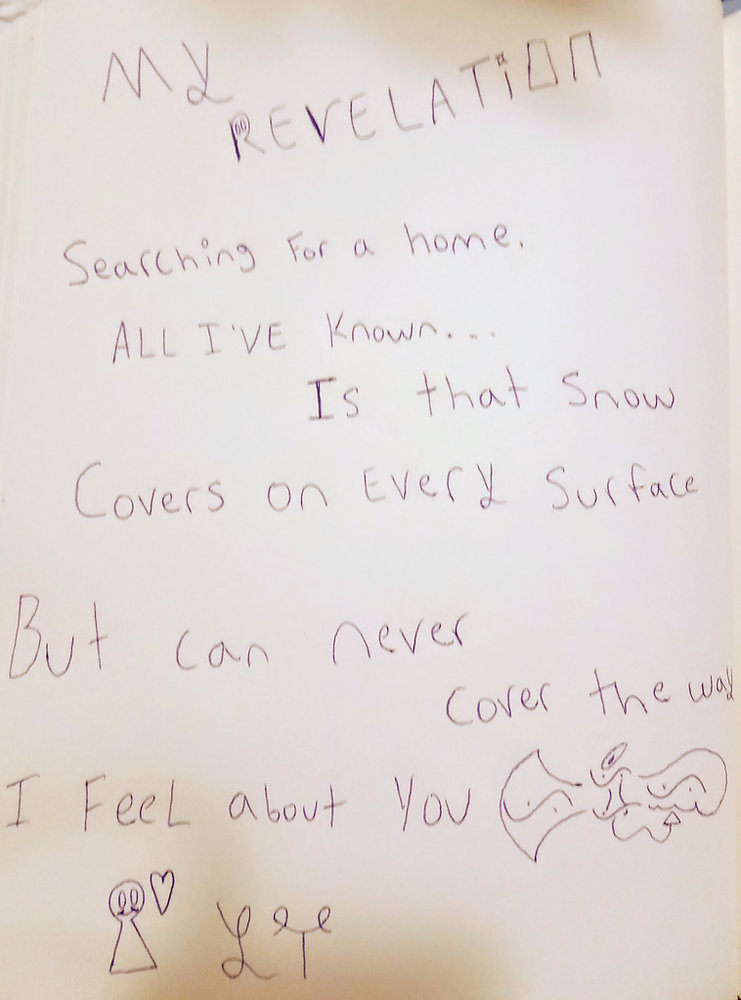 MY
REVELATiON
Searching For a home.
ALL I'VE Known...
Is that Snow
Covers on EVerY Surface
But can never
cover the way
I FeeL about You